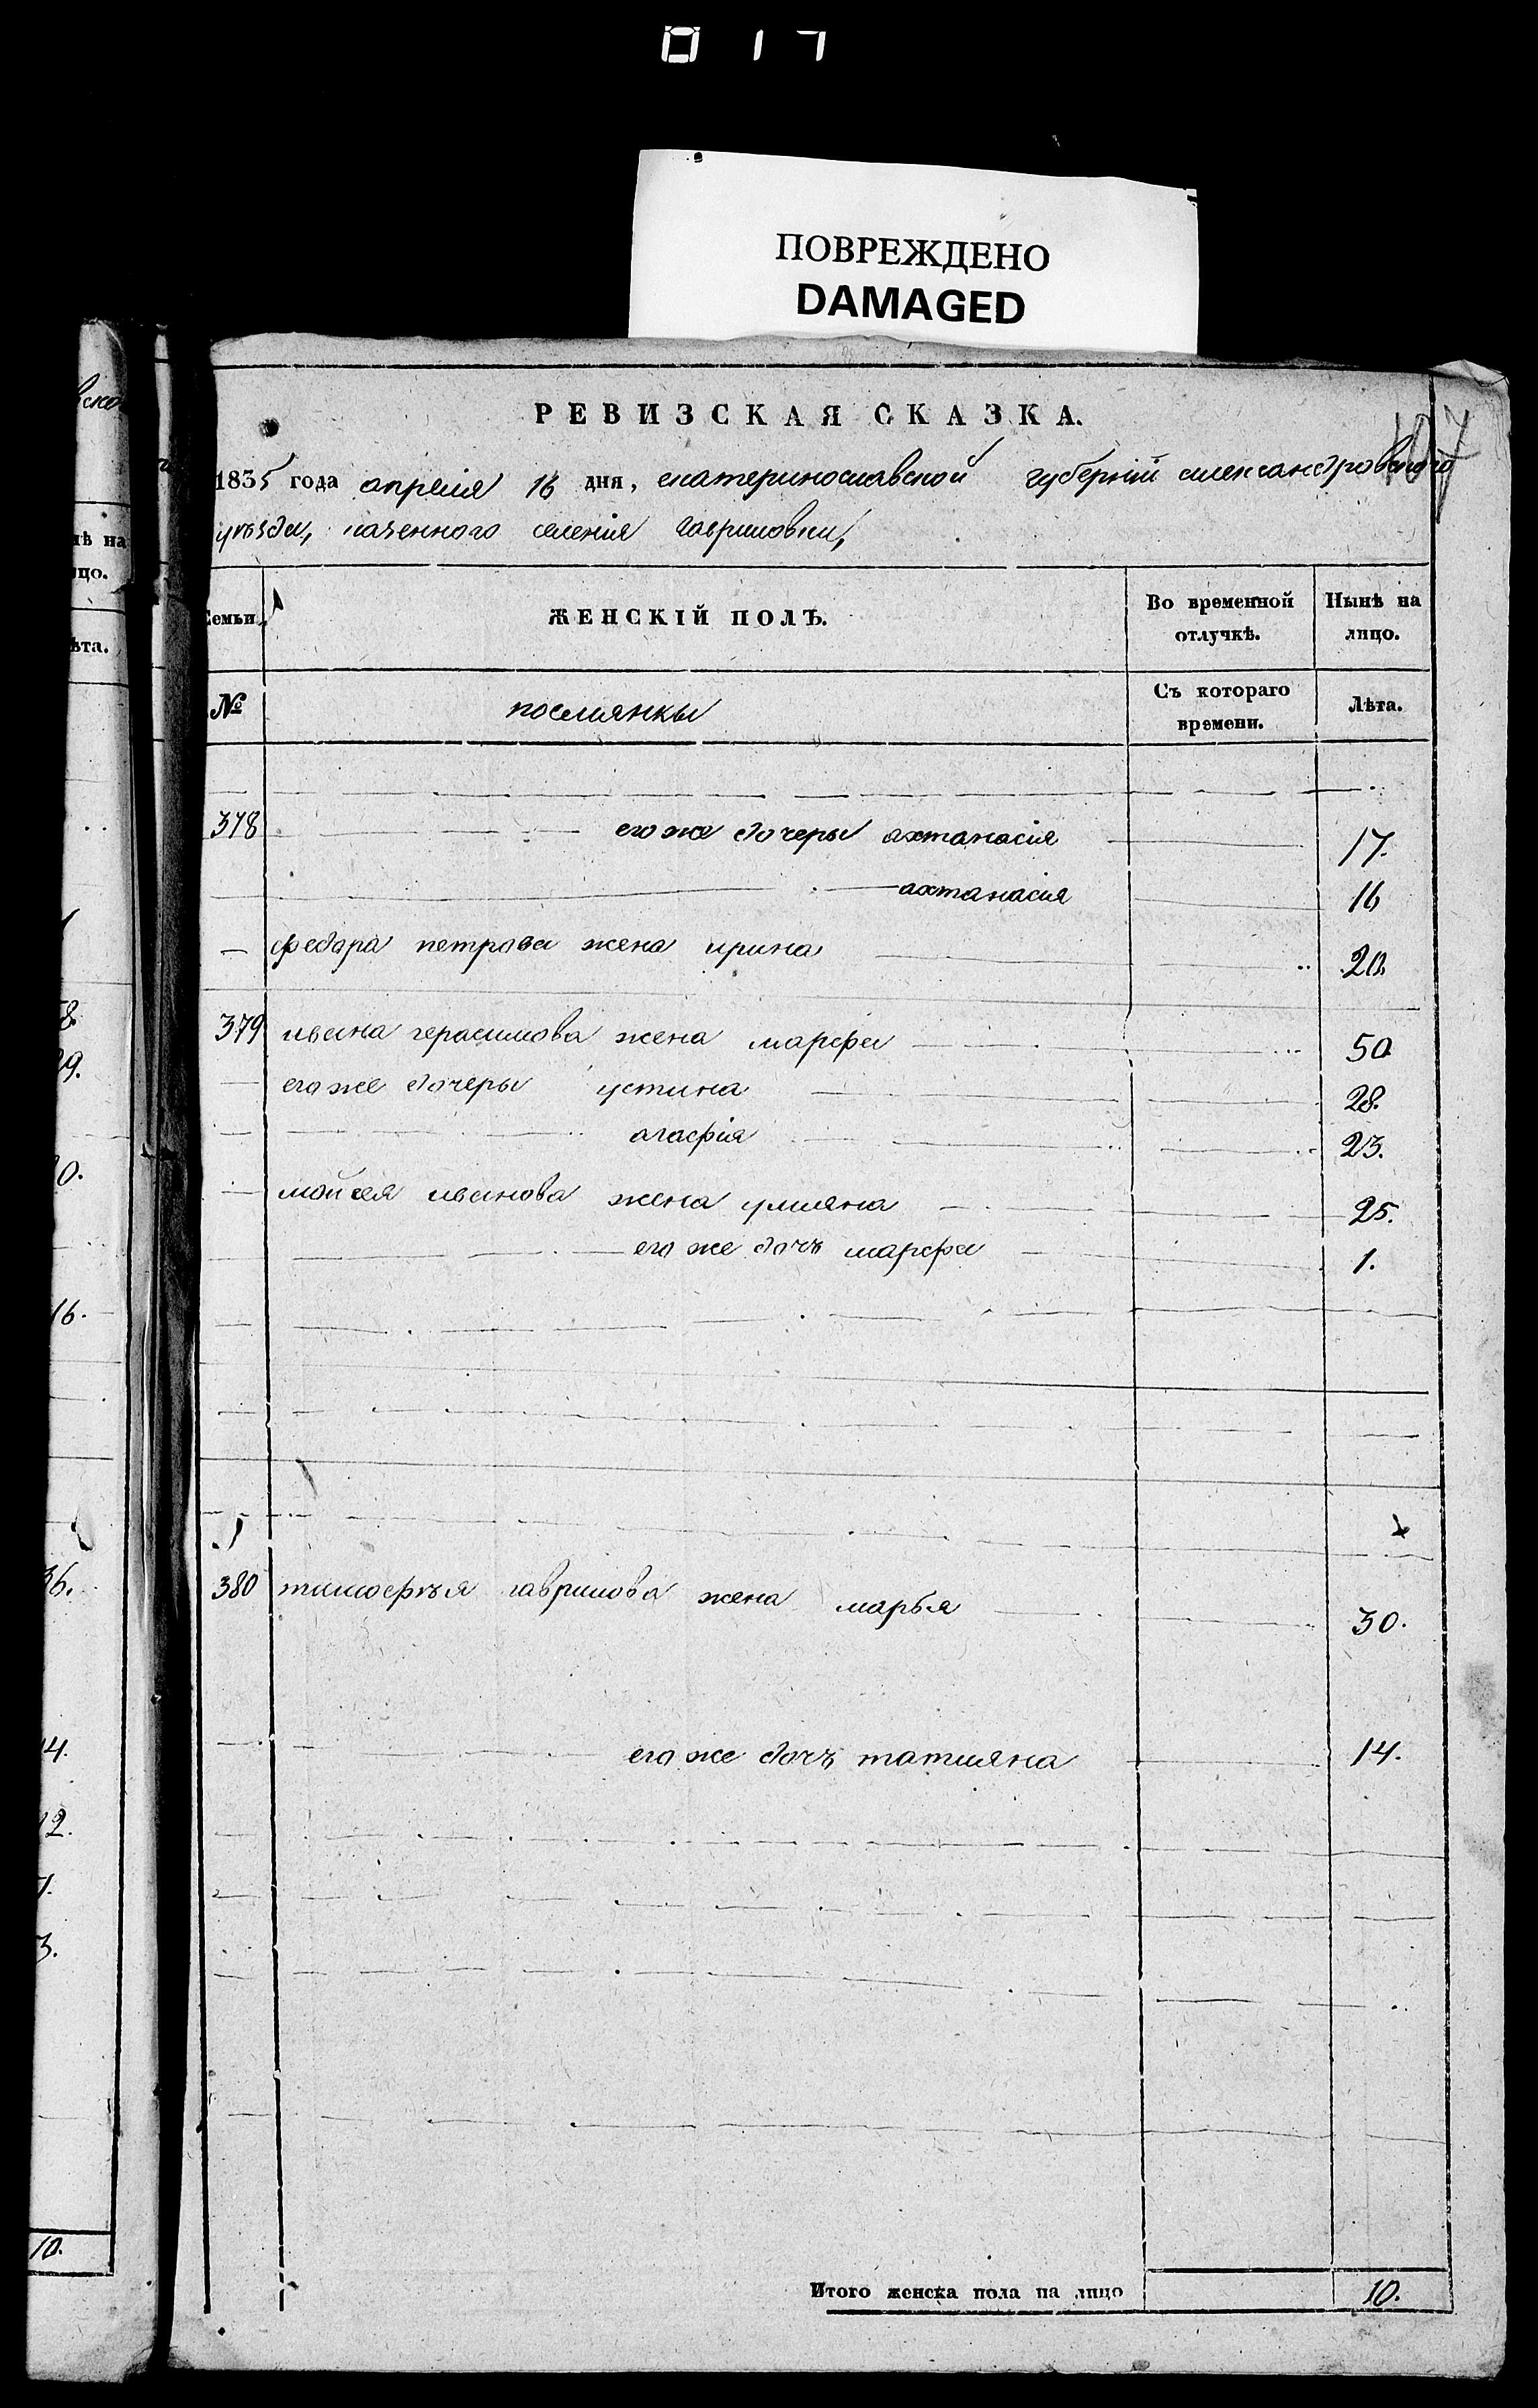 017
ПОВРЕЖДЕНО
DAMAGED
РЕВИЗСКАЯ СКАЗКА.
1835 года апреля 16 дня, екатеринославской губерніи александровского
уѣзда, казенного селенія гавриловки,
Семьи.
ЖЕНСКІЙ ПОЛЪ.
Во временной отлучкѣ.
Нынѣ на лицо.
№
поселянкы
Съ котораго времени.
Лѣта.
378 его же дочеры ахтанасія 17.
ахтанасія 16
федора петрова жена ирина 20.
379 ивана герасимова жена марфа 50
его же дочеры устина 28.
агафія 23.
мойсея иванова жена улияна 25.
его же дочъ марфа 1.
380 тимофѣя гаврилова жена марья 30.
его же дочъ татияна 14.
Итого женска пола на лицо 10.